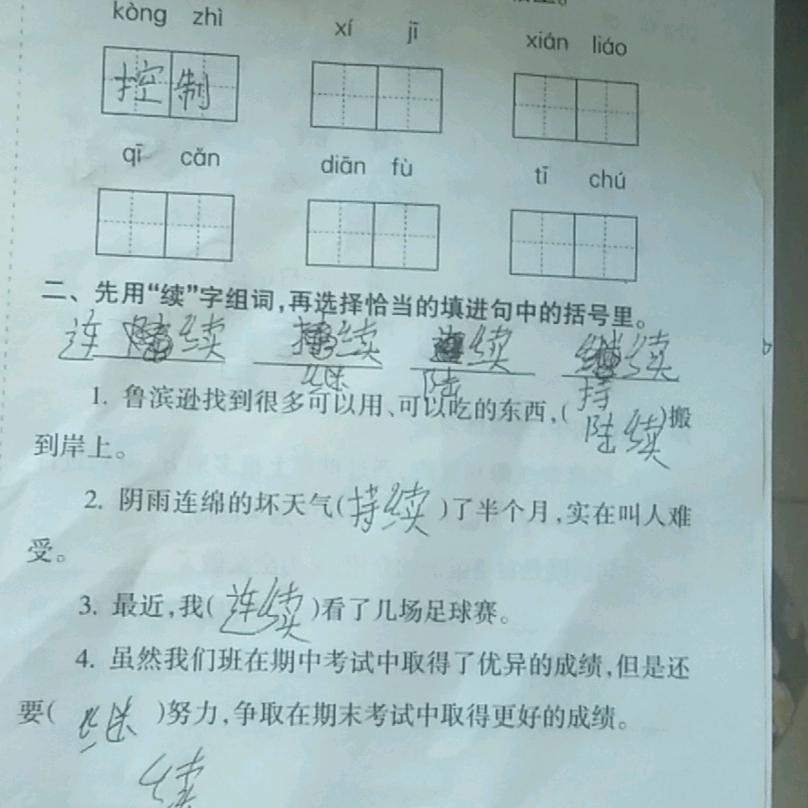 kòng zhì xí jī xián liáo
控制
qī cǎn diān fù tī chú
二、先用“续”字组词,再选择恰当的填进句中的括号里。
连续 续 续 续
继 陆 持
1. 鲁滨逊找到很多可以用、可以吃的东西,( )搬
陆续
到岸上。
2. 阴雨连绵的坏天气(持续)了半个月,实在叫人难
受。
3. 最近,我(连续)看了几场足球赛。
4. 虽然我们班在期中考试中取得了优异的成绩,但是还
要(继)努力,争取在期末考试中取得更好的成绩。
续